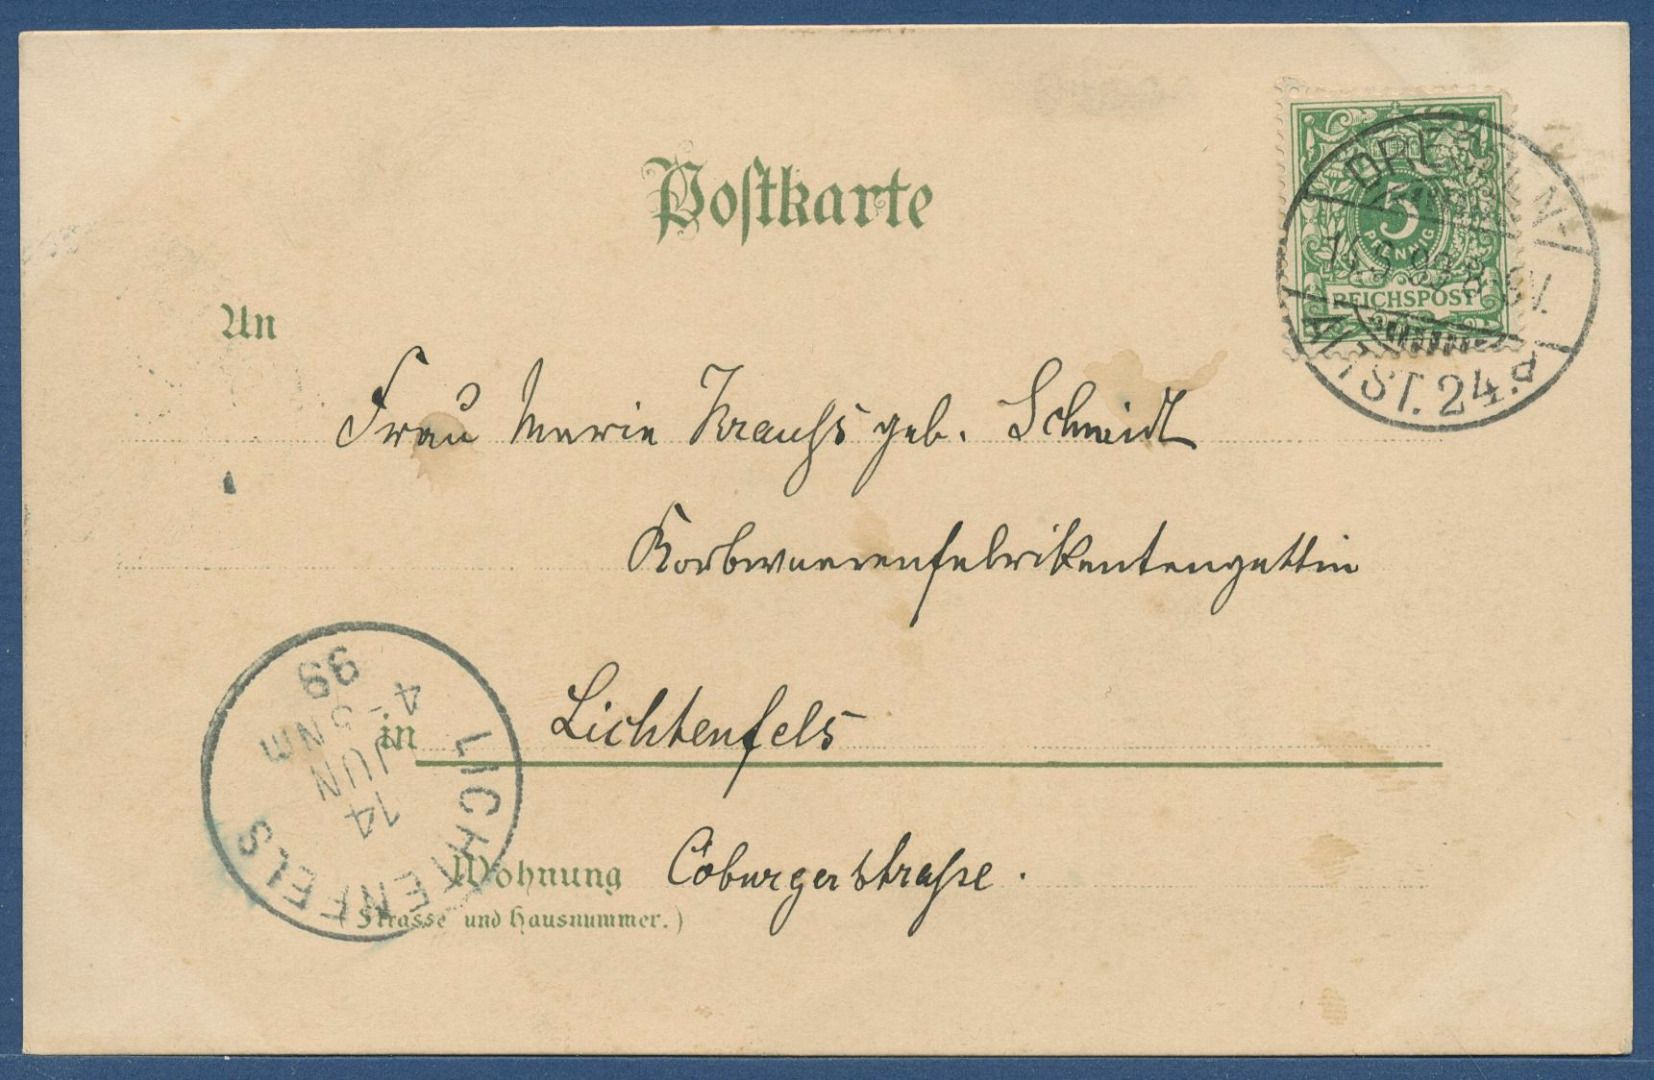 Postkarte
5
PFENNIG
REICHSPOST
DRESDEN-
8-9V.
ALTST. 24.d
An
Frau Marie Krauſs geb. Schmidt
Korbwaarenfabrikantengattin
in Lichtenfels
Wohnung Coburgerstraſse.
(Strasse und Hausnummer.)
LICHTENFELS
14
JUN
4-5 Nm
99